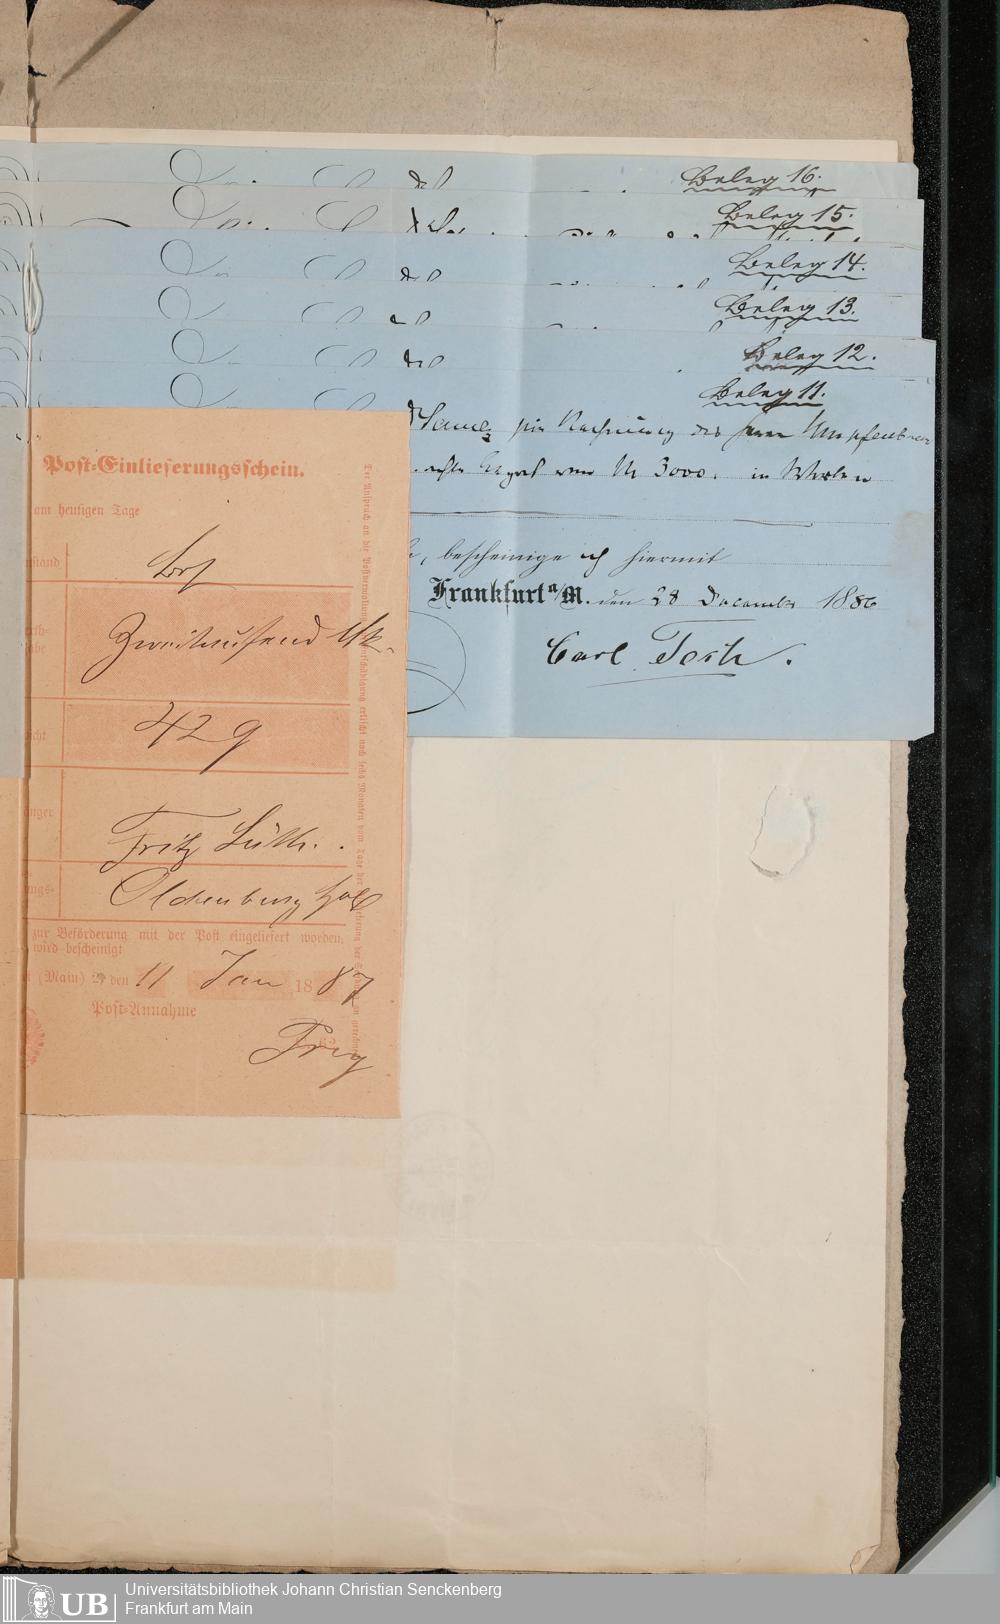 Beleg 16.
Beleg 15.
Beleg 14.
Beleg 13.
Beleg 12.
Beleg 11.
Rechnung des Herrn Umpfenbach
von M 3000. in Worten
bescheinige ich hiermit
Frankfurt a/M. den 28 December 1886
Carl Tesch.
Post-Einlieferungsschein.
am heutigen Tage
stand
Brf
rth-
abe
Zweitausend Mk.
icht
42 g
änger
Fritz Lüth.
ngs-
Oldenburg Hol
zur Beförderung mit der Post eingeliefert worden,
wird bescheinigt
(Main) 2 den 11 Jan 1887
Post-Annahme
Der Anspruch an die Postverwaltung auf Entschädigung erlischt nach sechs Monaten vom Tage der Einlieferung der Sendung an gerechnet
Universitätsbibliothek Johann Christian Senckenberg
Frankfurt am Main
UB